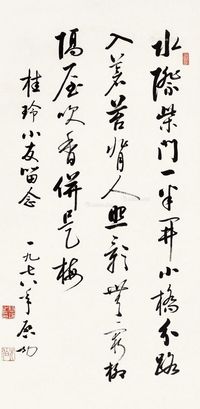 水际柴门一半开小桥分路
入苍苔背人照影无穷柳
隔屋吹香併是梅
桂玲小友留念
一九七八年 启功